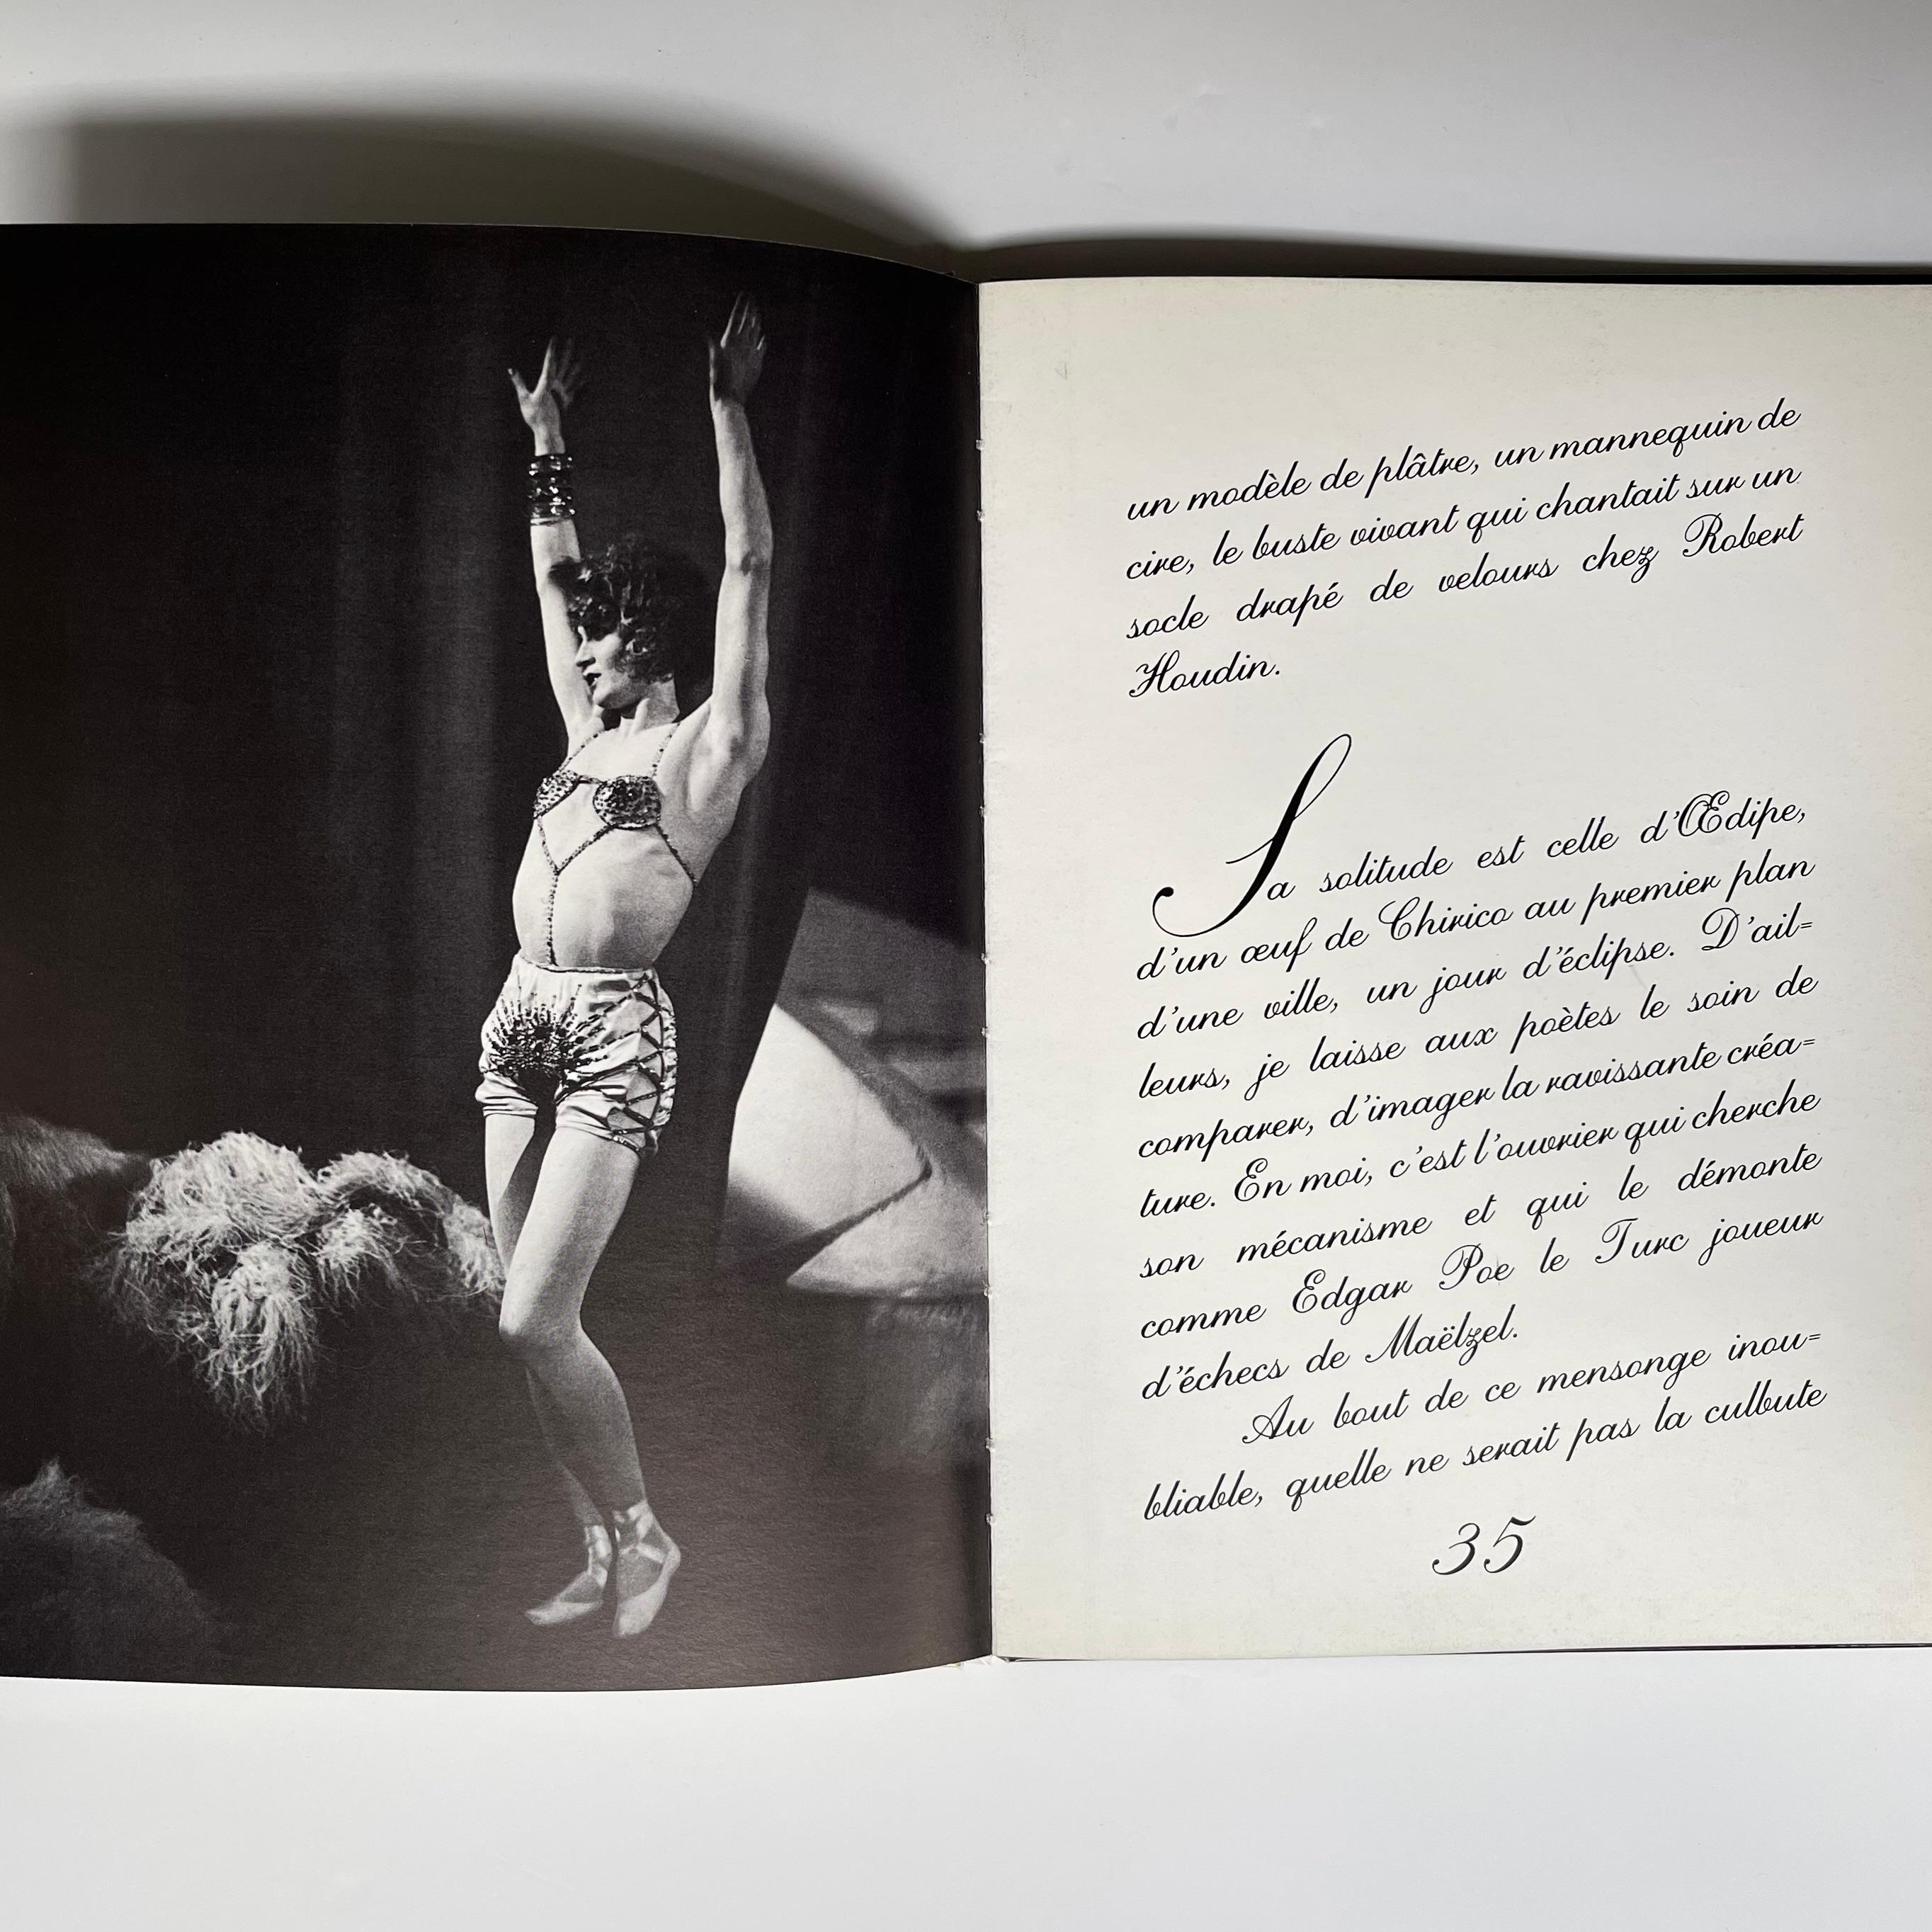 un modèle de plâtre, un mannequin de
cire, le buste vivant qui chantait sur un
socle drapé de velours chez Robert
Houdin.
Sa solitude est celle d'Œdipe,
d'un œuf de Chirico au premier plan
d'une ville, un jour d'éclipse. D'ail=
leurs, je laisse aux poètes le soin de
comparer, d'imager la ravissante créa=
ture. En moi, c'est l'ouvrier qui cherche
son mécanisme et qui le démonte
comme Edgar Poe le Turc joueur
d'échecs de Maëlzel.
Au bout de ce mensonge inou=
bliable, quelle ne serait pas la culbute
35